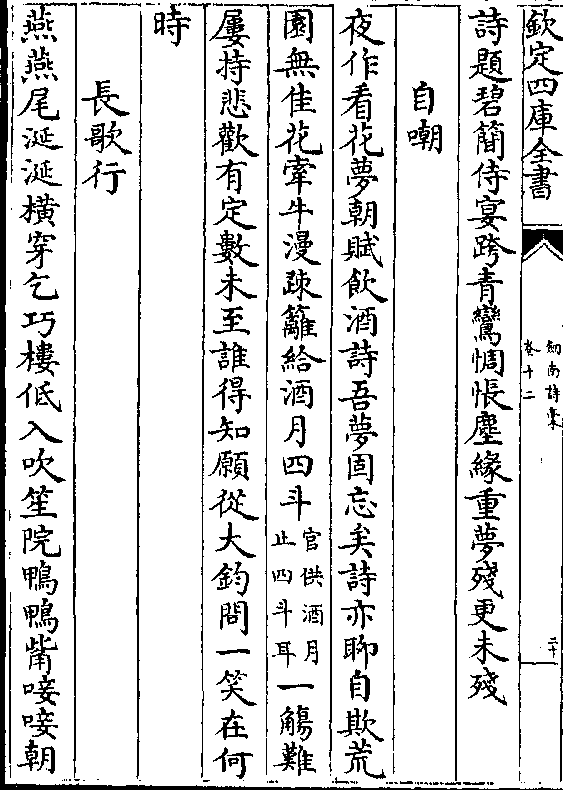 欽定四庫全書
劒南詩稾
卷十二
二十
詩題碧簡侍宴跨青鸞惆悵塵緣重夢殘更未殘
自嘲
夜作看花夢朝賦飲酒詩吾夢固忘矣詩亦聊自欺荒
園無佳花牽牛漫疎籬給酒月四斗官供酒月止四斗耳一觴難
屢持悲歡有定數未至誰得知願從大鈞問一笑在何
時
長歌行
燕燕尾涎涎橫穿乞巧樓低入吹笙院鴨鴨觜唼唼朝